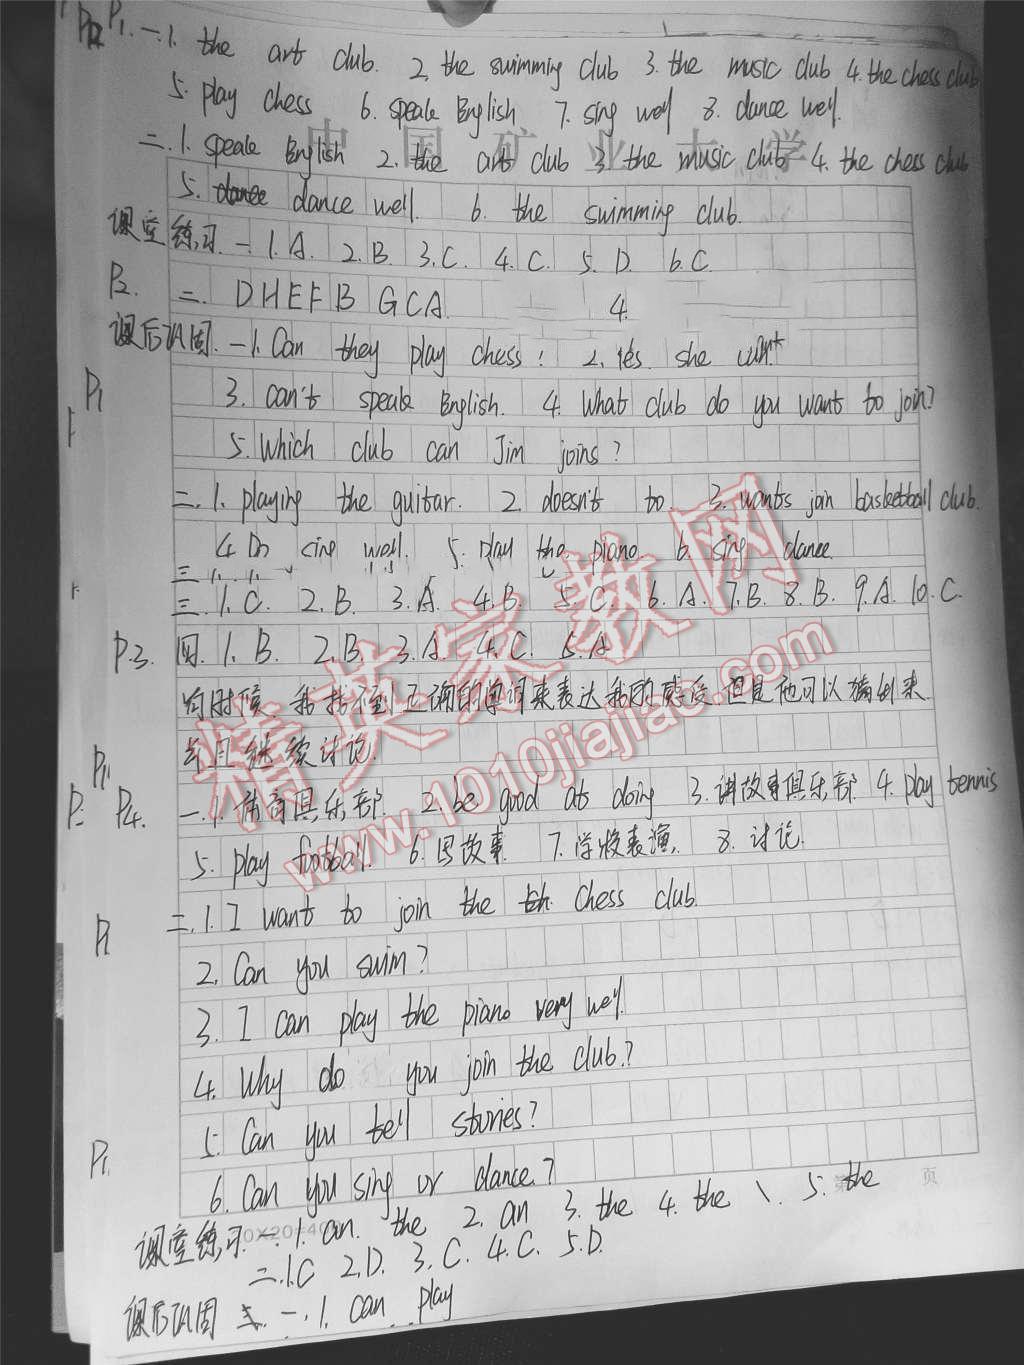 P1. 一.1. the art club. 2. the swimming club 3. the music club 4. the chess club
5. play chess 6. speak English 7. sing well 8. dance well.
中国矿业大学
二.1. speak English 2. the art club 3. the music club 4. the chess club
5. dance well. 6. the swimming club.
课堂练习. 一.1.A. 2.B. 3.C. 4.C. 5.D. 6.C.
P2. 二. DHEFB GCA. 4.
课后巩固. 一.1. Can they play chess? 2. Yes she can't
P1 3. can't speak English. 4. What club do you want to join?
5. Which club can Jim joins?
二.1. playing the guitar. 2. doesn't to. 3. wants join basketball club.
4. Do sing well. 5. play the piano 6. sing dance
三
三.1.C. 2.B. 3.A. 4.B. 5.C. 6.A. 7.B. 8.B. 9.A. 10.C.
P.3. 四.1.B. 2.B. 3.A. 4.C. 5.A
的时候, 我找不到正确的单词来表达我的感受,但是他可以猜到来
并且继续讨论.
P4. 一.1.体育俱乐部. 2.be good at doing 3.讲故事俱乐部 4.play tennis
5. play football. 6.写故事. 7.学校表演. 8.讨论.
二.1. I want to join the chess club.
P1 2. Can you swim?
3. I can play the piano very well.
4. Why do you join the club.?
5. Can you tell stories?
P1. 6. Can you sing or dance?
第 页
20×20=400
课堂练习. 一.1. an. the 2. an 3. the 4. the \. 5. the
二.1.C 2.D. 3.C. 4.C. 5.D.
课后巩固 一.1. can play
精英家教网
www.1010jiajiao.com